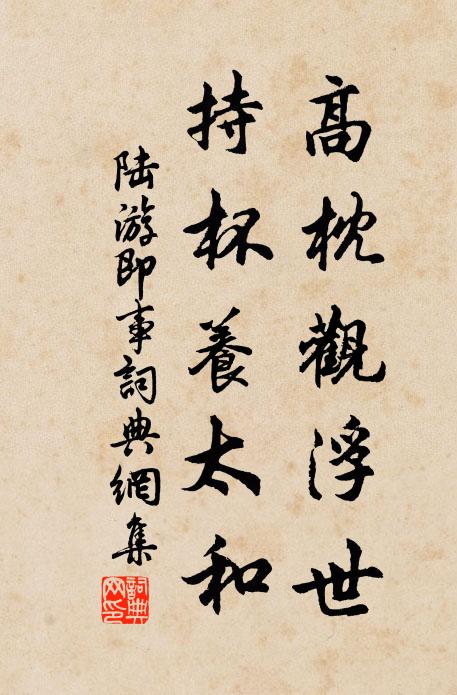 高枕觀浮世
持杯養太和
陸游即事詞典網集
詞典網印